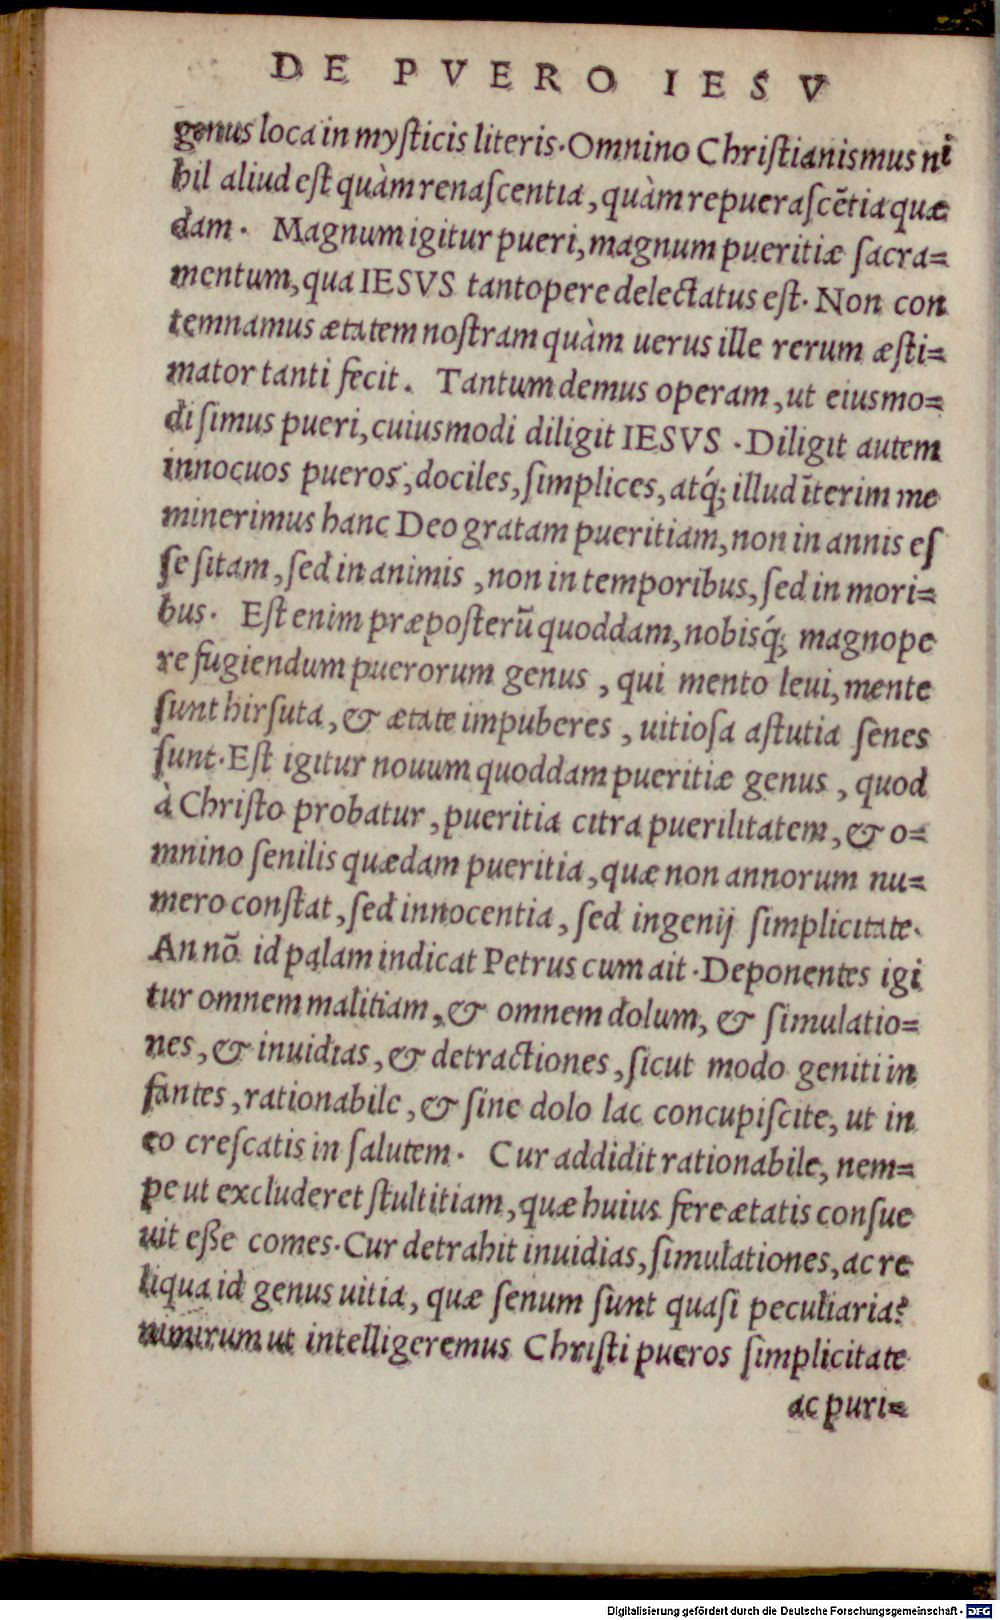 DE PVERO IESV
genus loca in myſticis literis. Omnino Chriſtianismus ni
hil aliud eſt quàm renaſcentia, quàm repueraſcẽtia quæ
dam. Magnum igitur pueri, magnum pueritiæ ſacra=
mentum, qua IESVS tantopere delectatus eſt. Non con
temnamus ætatem noſtram quàm uerus ille rerum æſti=
mator tanti fecit. Tantum demus operam, ut eiusmo=
di ſimus pueri, cuiusmodi diligit IESVS. Diligit autem
innocuos pueros, dociles, ſimplices, atq́; illud ĩterim me
minerimus hanc Deo gratam pueritiam, non in annis eſ
ſe ſitam, ſed in animis, non in temporibus, ſed in mori=
bus. Eſt enim præpoſterũ quoddam, nobisq́; magnope
re fugiendum puerorum genus, qui mento leui, mente
ſunt hirſuta, & ætate impuberes, uitioſa aſtutia ſenes
ſunt. Eſt igitur nouum quoddam pueritiæ genus, quod
à Chriſto probatur, pueritia citra puerilitatem, & o=
mnino ſenilis quædam pueritia, quæ non annorum nu=
mero conſtat, ſed innocentia, ſed ingenij ſimplicitate.
An nõ id palam indicat Petrus cum ait. Deponentes igi
tur omnem malitiam, & omnem dolum, & ſimulatio=
nes, & inuidias, & detractiones, ſicut modo geniti in
fantes, rationabile, & ſine dolo lac concupiſcite, ut in
eo creſcatis in ſalutem. Cur addidit rationabile, nem=
pe ut excluderet ſtultitiam, quæ huius fere ætatis conſue
uit eſſe comes. Cur detrahit inuidias, ſimulationes, ac re
liqua id genus uitia, quæ ſenum ſunt quaſi peculiaria?
nimirum ut intelligeremus Chriſti pueros ſimplicitate
ac puri=
Digitalisierung gefördert durch die Deutsche Forschungsgemeinschaft - DFG